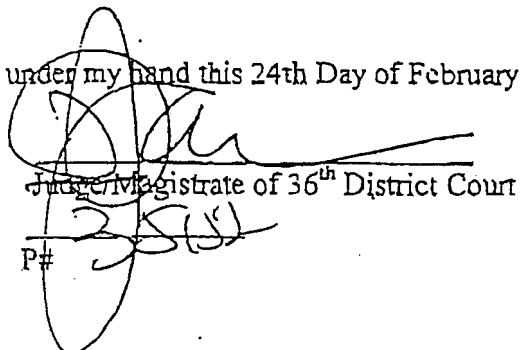 under my hand this 24th Day of February
Judge/Magistrate of 36th District Court
P#